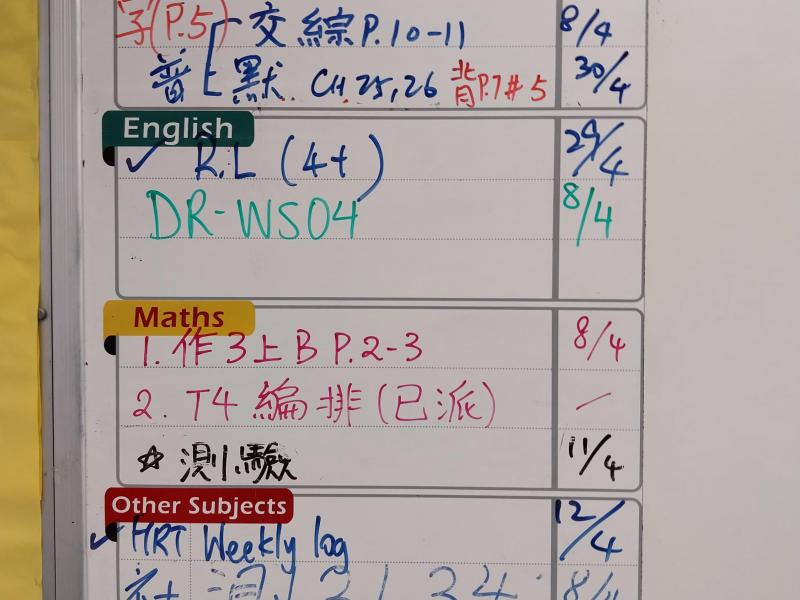 字(P.5) 交綜P.10-11 8/4
普 上 默 CH 25,26 背P.7#5 30/4
English
✓ R.L (4+) 29/4
DR-WS04 8/4
Maths
1. 作3上B P.2-3 8/4
2. T4 編排(已派) —
☆ 測驗 11/4
Other Subjects
✓ HRT Weekly log 12/4
8/4